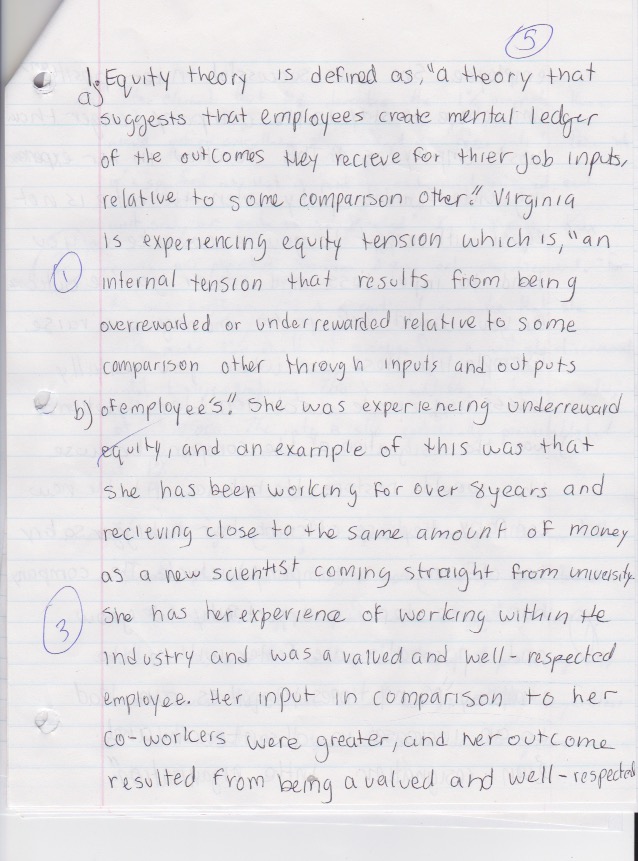 5
1. Equity theory is defined as, "a theory that
a) suggests that employees create mental ledger
of the outcomes they recieve for thier job inputs,
relative to some comparison other." Virginia
is experiencing equity tension which is, "an
1 internal tension that results from being
overrewarded or underrewarded relative to some
comparison other through inputs and outputs
b) of employee's." She was experiencing underreward
equity, and an example of this was that
she has been working for over 8 years and
recieving close to the same amount of money
as a new scientist coming straight from university.
3 She has her experience of working within the
industry and was a valued and well-respected
employee. Her input in comparison to her
co-workers were greater, and her outcome
resulted from being a valued and well-respected